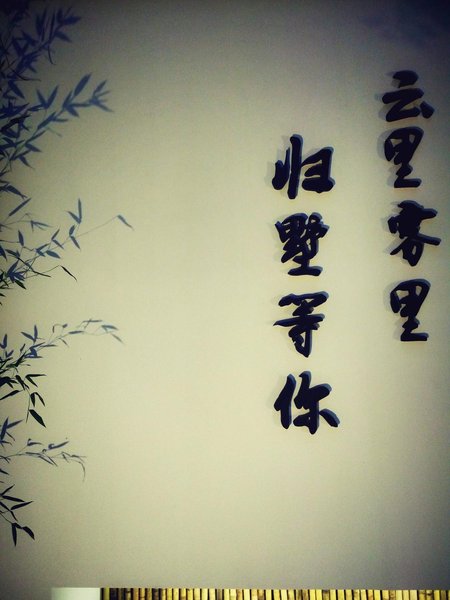 云里雾里
归墅等你